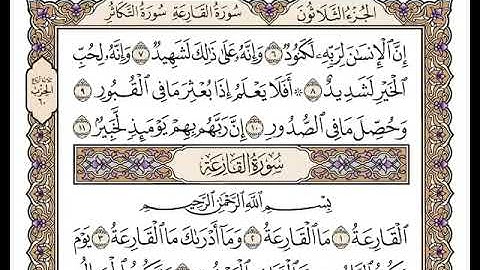 الجزء الثلاثون سورة القارعة سورة التكاثر
إِنَّ ٱلْإِنسَٰنَ لِرَبِّهِۦ لَكَنُودٌ ٦ وَإِنَّهُۥ عَلَىٰ ذَٰلِكَ لَشَهِيدٌ ٧ وَإِنَّهُۥ لِحُبِّ
ٱلْخَيْرِ لَشَدِيدٌ ٨ ۞ أَفَلَا يَعْلَمُ إِذَا بُعْثِرَ مَا فِى ٱلْقُبُورِ ٩
وَحُصِّلَ مَا فِى ٱلصُّدُورِ ١٠ إِنَّ رَبَّهُم بِهِمْ يَوْمَئِذٍ لَّخَبِيرٌۢ ١١
سُورَةُ القَارِعَةِ
بِسْمِ ٱللَّهِ ٱلرَّحْمَٰنِ ٱلرَّحِيمِ
ٱلْقَارِعَةُ ١ مَا ٱلْقَارِعَةُ ٢ وَمَآ أَدْرَىٰكَ مَا ٱلْقَارِعَةُ ٣ يَوْمَ